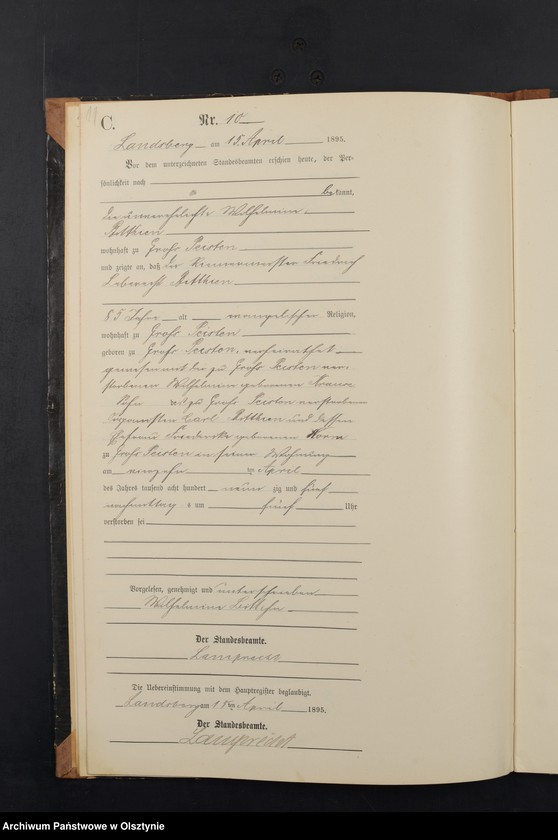 11
C.
Nr. 10
Landsberg am 15. April 1895.
Vor dem unterzeichneten Standesbeamten erschien heute, der Per-
sönlichkeit nach
bekannt,
die unverehelichte Wilhelmine
wohnhaft zu Groß Peisten
und zeigte an, daß der Friedrich
Leberecht
85 Jahre alt evangelischer Religion,
wohnhaft zu Groß Peisten
geboren zu Groß Peisten, verheirathet
gewesen mit der zu Groß Peisten ver-
storbenen Wilhelmine geborenen Krause
Sohn des zu Groß Peisten verstorbenen
Carl und dessen
Ehefrau Friederike geborenen
zu Groß Peisten in seiner Wohnung
am vierzehn ten April
des Jahres tausend acht hundert neun zig und fünf
nachmittag s um fünf Uhr
verstorben sei
Vorgelesen, genehmigt und unterschrieben
Wilhelmine
Der Standesbeamte.
Lamprecht
Die Uebereinstimmung mit dem Hauptregister beglaubigt.
Landsberg am 15ten April 1895.
Der Standesbeamte.
Lamprecht
Archiwum Państwowe w Olsztynie